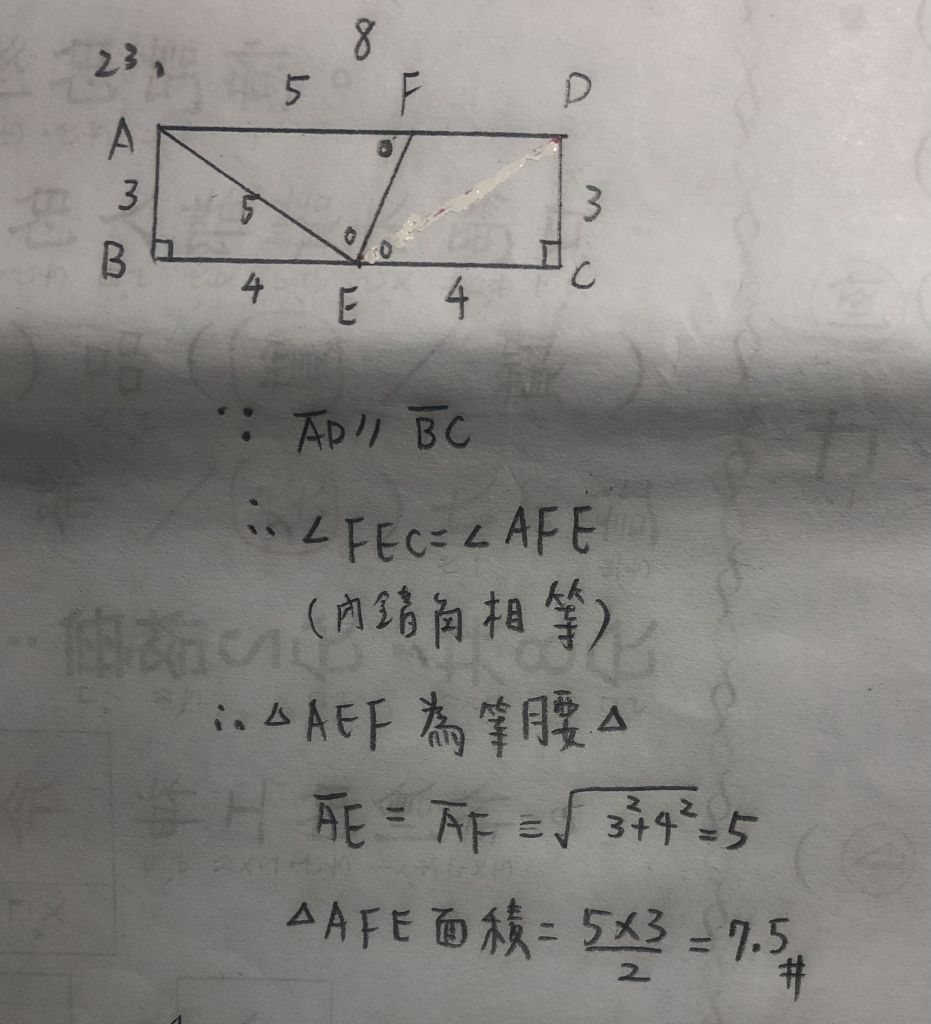 23、
8
5 F D
A
3 5 3
B C
4 E 4
∵ A̅D̅ // B̅C̅
∴ ∠FEC=∠AFE
(內錯角相等)
∴ △AEF 為等腰△
A̅E̅ = A̅F̅ = √3²+4² = 5
△AFE面積 = 5×3/2 = 7.5#